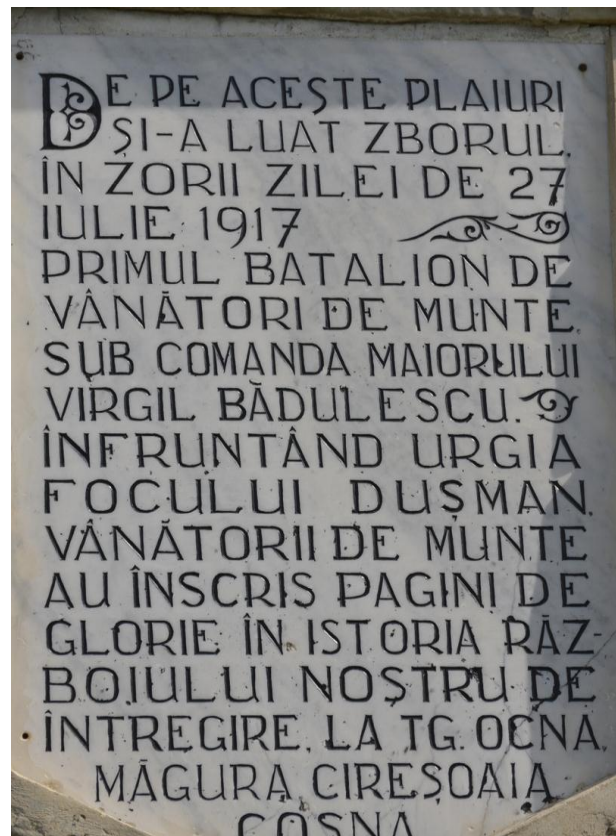 DE PE ACEȘTE PLAIURI
ȘI-A LUAT ZBORUL,
ÎN ZORII ZILEI DE 27
IULIE 1917
PRIMUL BATALION DE
VÂNĂTORI DE MUNTE,
SUB COMANDA MAIORULUI
VIRGIL BĂDULESCU.
ÎNFRUNTÂND URGIA
FOCULUI DUȘMAN,
VÂNĂTORII DE MUNTE
AU ÎNSCRIS PAGINI DE
GLORIE ÎN ISTORIA RĂZ-
BOIULUI NOȘTRU DE
ÎNTREGIRE, LA TG. OCNA,
MĂGURA, CIREȘOAIA,
COȘNA